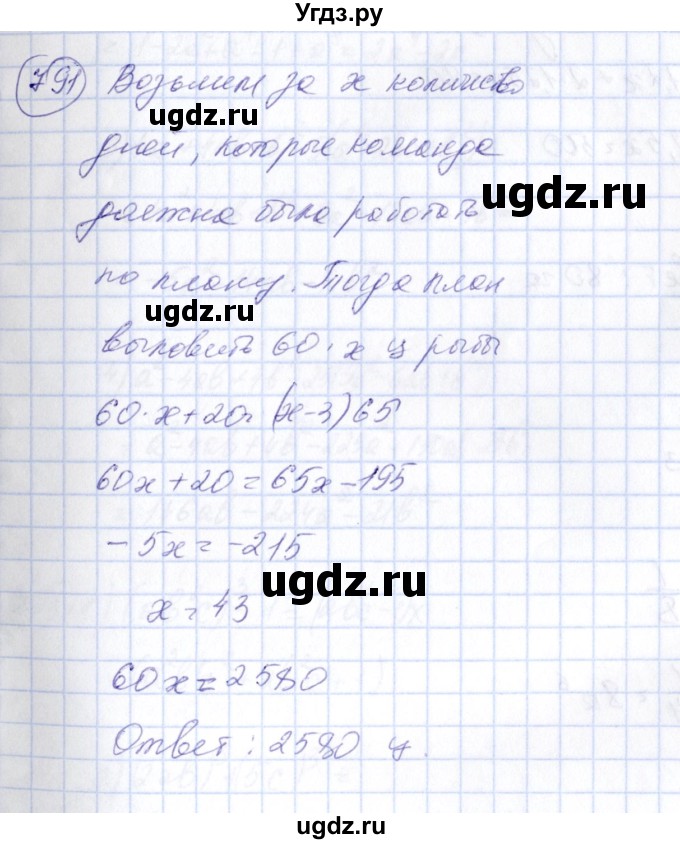 Угдз.ру
791 Возьмем за x количество
ugdz.ru
дней, которые команда
ugdz.ru
должна была работать
ugdz.ru
по плану. Тогда план
ugdz.ru
выловить 60 · x ц рыбы
60·x+20=(x-3)65
ugdz.ru
60x+20=65x-195
-5x=-215
ugdz.ru
x=43
60x=2580
ugdz.ru
Ответ: 2580 ц.
ugdz.ru